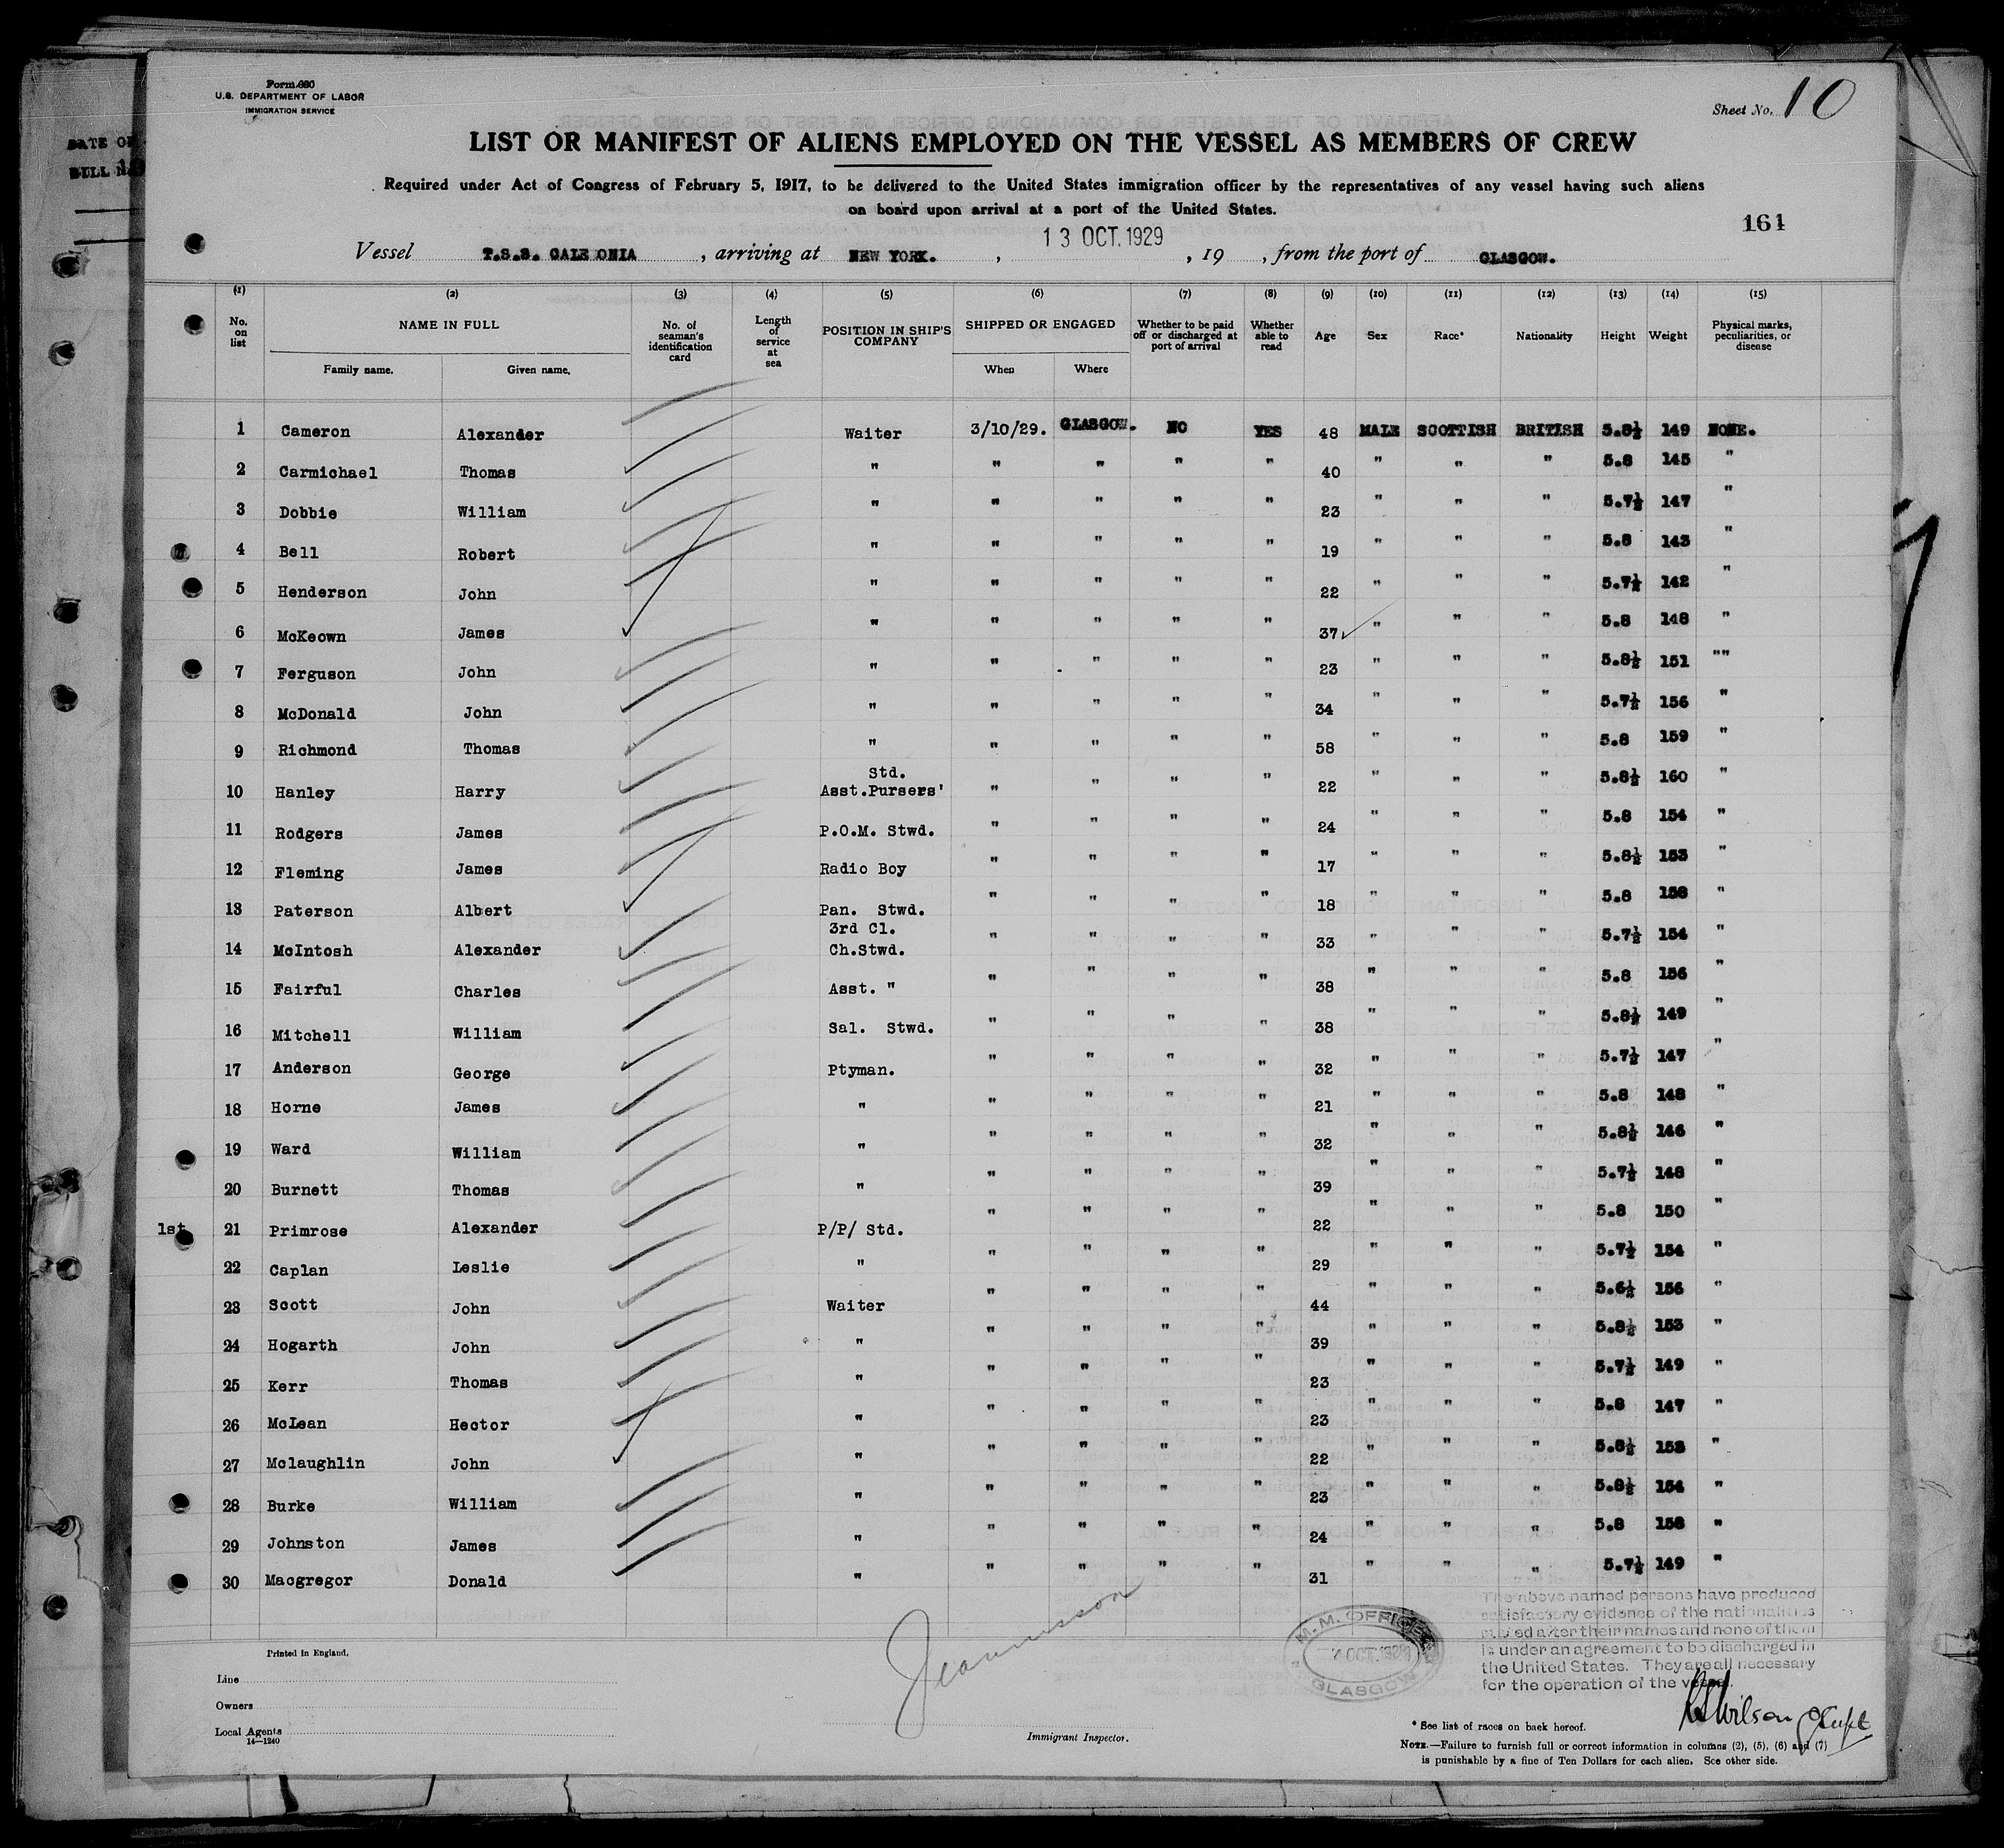 DATE OF
BULL NO
Form 680
U.S. DEPARTMENT OF LABOR
IMMIGRATION SERVICE
Sheet No. 10
LIST OR MANIFEST OF ALIENS EMPLOYED ON THE VESSEL AS MEMBERS OF CREW
Required under Act of Congress of February 5, 1917, to be delivered to the United States immigration officer by the representatives of any vessel having such aliens
on board upon arrival at a port of the United States.
161
13 OCT. 1929
Vessel T.S.S. CALEDONIA, arriving at NEW YORK. , , 19 , from the port of GLASGOW.
(1) (2) (3) (4) (5) (6) (7) (8) (9) (10) (11) (12) (13) (14) (15)
No. on list NAME IN FULL No. of seaman's identification card Length of service at sea POSITION IN SHIP'S COMPANY SHIPPED OR ENGAGED Whether to be paid off or discharged at port of arrival Whether able to read Age Sex Race* Nationality Height Weight Physical marks, peculiarities, or disease
Family name. Given name. When Where
1 Cameron Alexander Waiter 3/10/29. GLASGOW. NO YES 48 MALE SCOTTISH BRITISH 5.8½ 149 NONE.
2 Carmichael Thomas " " " " " 40 " " " 5.8 145 "
3 Dobbie William " " " " " 23 " " " 5.7½ 147 "
4 Bell Robert " " " " " 19 " " " 5.8 143 "
5 Henderson John " " " " " 22 " " " 5.7½ 142 "
6 McKeown James " " " " " 37 " " " 5.8 148 "
7 Ferguson John " " " " " 23 " " " 5.8½ 151 ""
8 McDonald John " " " " " 34 " " " 5.7½ 156 "
9 Richmond Thomas " " " " " 58 " " " 5.8 159 "
10 Hanley Harry Std. Asst.Pursers' " " " " 22 " " " 5.8½ 160 "
11 Rodgers James P.O.M. Stwd. " " " " 24 " " " 5.8 154 "
12 Fleming James Radio Boy " " " " 17 " " " 5.8½ 153 "
13 Paterson Albert Pan. Stwd. " " " " 18 " " " 5.8 158 "
14 McIntosh Alexander 3rd Cl. Ch.Stwd. " " " " 33 " " " 5.7½ 154 "
15 Fairful Charles Asst. " " " " " 38 " " " 5.8 156 "
16 Mitchell William Sal. Stwd. " " " " 38 " " " 5.8½ 149 "
17 Anderson George Ptyman. " " " " 32 " " " 5.7½ 147 "
18 Horne James " " " " " 21 " " " 5.8 148 "
19 Ward William " " " " " 32 " " " 5.8½ 146 "
20 Burnett Thomas " " " " " 39 " " " 5.7½ 148 "
1st 21 Primrose Alexander P/P/ Std. " " " " 22 " " " 5.8 150 "
22 Caplan Leslie " " " " " 29 " " " 5.7½ 154 "
23 Scott John Waiter " " " " 44 " " " 5.6½ 156 "
24 Hogarth John " " " " " 39 " " " 5.8½ 153 "
25 Kerr Thomas " " " " " 23 " " " 5.7½ 149 "
26 McLean Hector " " " " " 23 " " " 5.8 147 "
27 Mclaughlin John " " " " " 22 " " " 5.8½ 153 "
28 Burke William " " " " " 23 " " " 5.8½ 154 "
29 Johnston James " " " " " 24 " " " 5.8 158 "
30 Macgregor Donald " " " " " 31 " " " 5.7½ 149 "
The above named persons have produced
satisfactory evidence of the nationalities
stated after their names and none of them
is under an agreement to be discharged in
the United States. They are all necessary
for the operation of the vessel.
M.M. OFFICE
4 OCT. 1929
GLASGOW
Wilson
Printed in England.
Line
Owners
Local Agents
14—1240
Immigrant Inspector.
* See list of races on back hereof.
NOTE.—Failure to furnish full or correct information in columns (2), (5), (6) and (7)
is punishable by a fine of Ten Dollars for each alien. See other side.